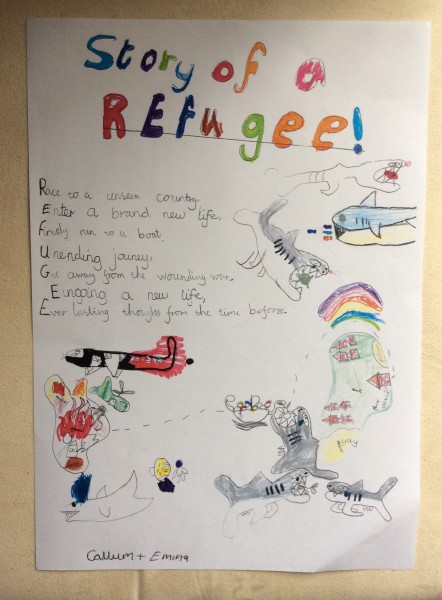 Story of a
REfugee!
Race to a unseen country.
Enter a brand new life.
Firstly run to a boat.
Unending jouney.
Get away from the wounding war.
Eungoing a new life,
Ever lasting thoughs from the time before.
Callum + Emina